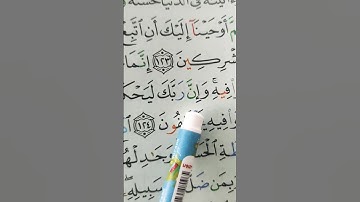 ءاتينه في الدنيا حسنة
أَوْحَيْنَآ إِلَيْكَ أَنِ ٱتَّبِعْ
شْرِكِينَ ١٢٣ إِنَّمَا
فِيهِ ۚ وَإِنَّ رَبَّكَ لَيَحْكُ
فِيهِ فُونَ ١٢٤
ٱلْحَسَ وَجَٰدِلْهُ
بِمَن ضَلَّ سَبِيلِهِۦ ۖ